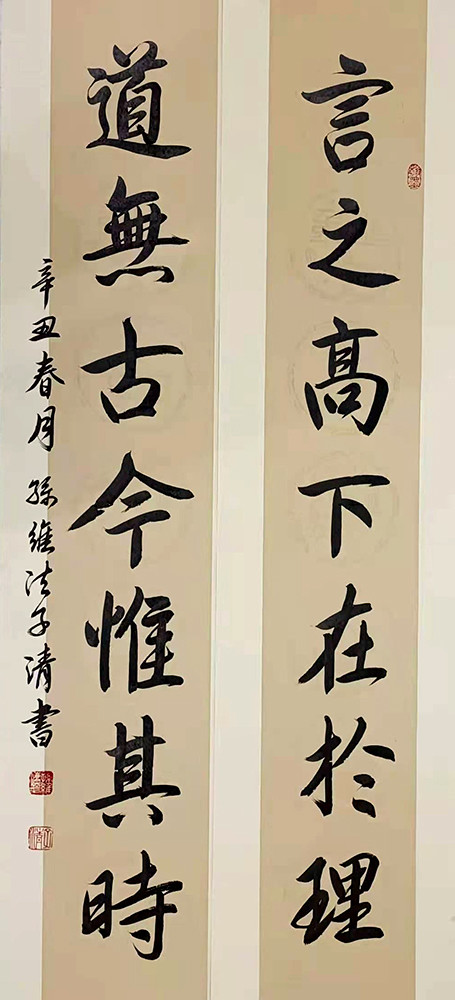 言之高下在於理
道無古今惟其時
辛丑春月孫維法子清書